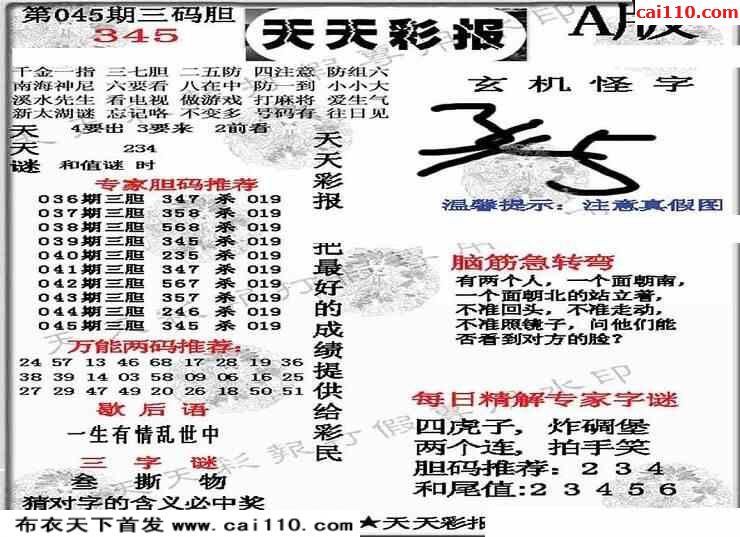 第045期三码胆
345
天天彩报
A版
cai110.com
千金一指 三七胆 二五防 四注意 防组六
南海神尼 六要看 八在中 防一到 小小大
溪水先生 看电视 做游戏 打麻将 爱生气
新太湖谜 忘记咯 不变多 号码有 往日见
天 4要出 3要来 2前看
天 234
谜 和值谜 时
专家胆码推荐
036期三胆 347 杀 019
037期三胆 358 杀 019
038期三胆 568 杀 019
039期三胆 345 杀 019
040期三胆 235 杀 019
041期三胆 347 杀 019
042期三胆 567 杀 019
043期三胆 357 杀 019
044期三胆 246 杀 019
045期三胆 345 杀 019
万能两码推荐:
24 57 13 46 68 17 28 19 36
38 39 14 03 58 09 06 16 25
27 29 47 49 20 26 18 50 51
歇后语
一生有情乱世中
三字谜
叁 撕 物
猜对字的含义必中奖
天天彩报 把最好的成绩提供给彩民
玄机怪字
温馨提示: 注意真假图
脑筋急转弯
有两个人, 一个面朝南,
一个面朝北的站立着,
不准回头, 不准走动,
不准照镜子, 问他们能
否看到对方的脸?
每日精解专家字谜
四虎子, 炸碉堡
两个连, 拍手笑
胆码推荐: 2 3 4
和尾值:2 3 4 5 6
布衣天下首发 www.cai110.com
★天天彩报